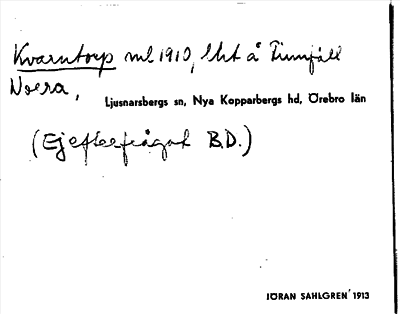 Kvarntorp ml 1910, lht å Finnfall
Norra,
Ljusnarsbergs sn, Nya Kopparbergs hd, Örebro län
(Ej efterfrågat B.D.)
IÖRAN SAHLGREN 1913